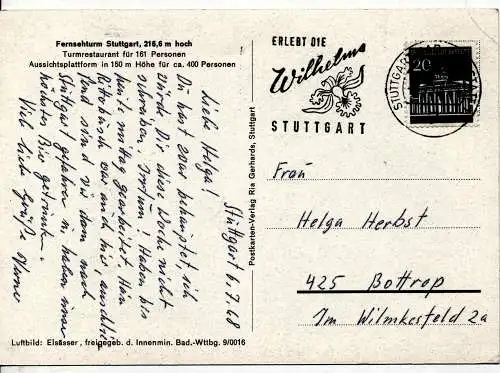 Fernsehturm Stuttgart, 216,6 m hoch
Turmrestaurant für 161 Personen
Aussichtsplattform in 150 m Höhe für ca. 400 Personen
Stuttgart 6.7.68
Liebe Helga!
Du hast zwar behauptet, ich
würde Dir diese Woche nicht
schreiben. Irrtum! Haben bis
heute mittag gearbeitet.
war auch hier, anschließ
sind wir dann nach
Stuttgart gefahren u. haben
Bier getrunken.
Viele liebe Grüße
Luftbild: Elsässer, freigegeb. d. Innenmin. Bad.-Wttbg. 9/0016
Postkarten-Verlag Ria Gerhards, Stuttgart
ERLEBT DIE
Wilhelma
STUTTGART
STUTTGART
20
Frau
Helga Herbst
425 Bottrop
Im Wilmkesfeld 2a